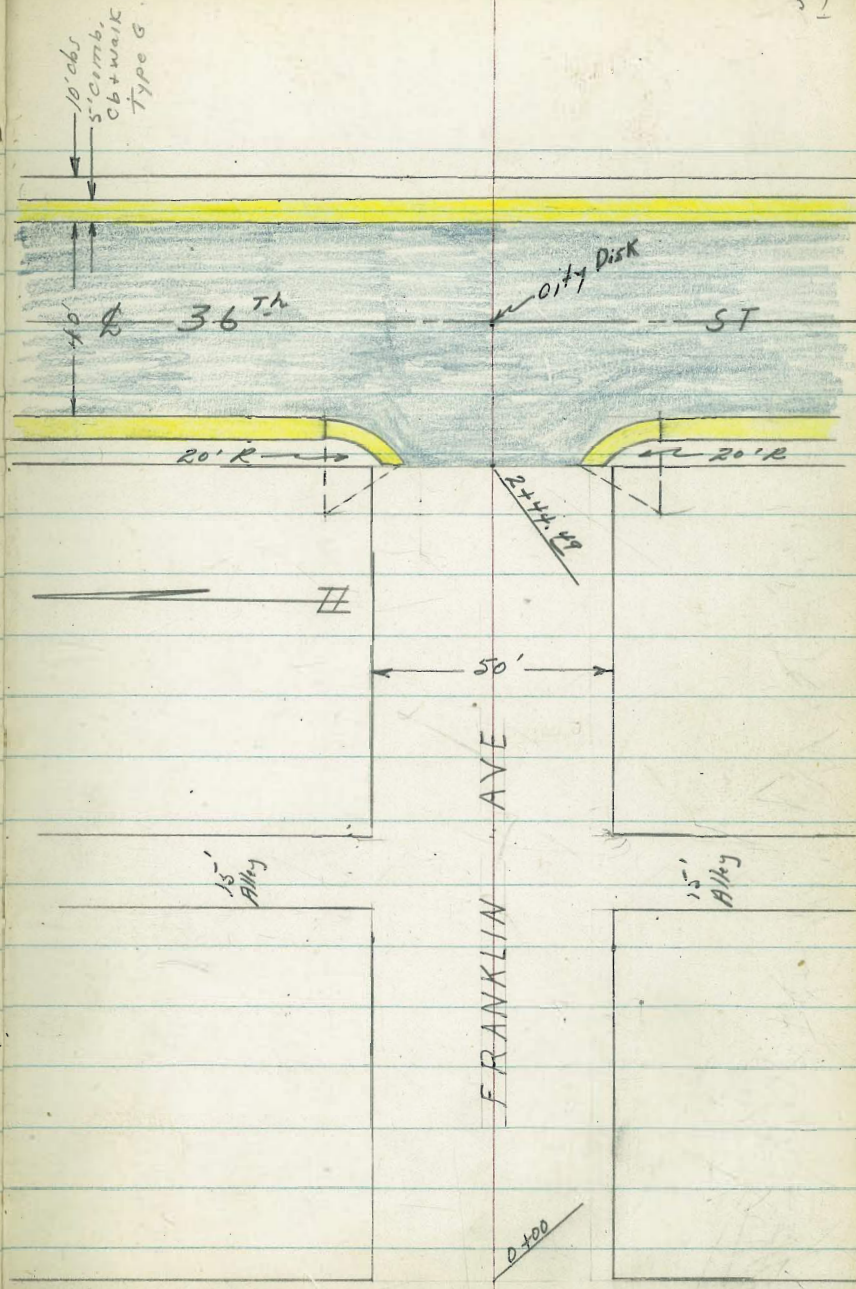 10' Cbs
5' Comb.
Cb + Walk
Type G
City Disk
40'
℄ 36Th ST
20' R
20' R
2+44.49
50'
FRANKLIN AVE
15'
Alley
15'
Alley
0+00